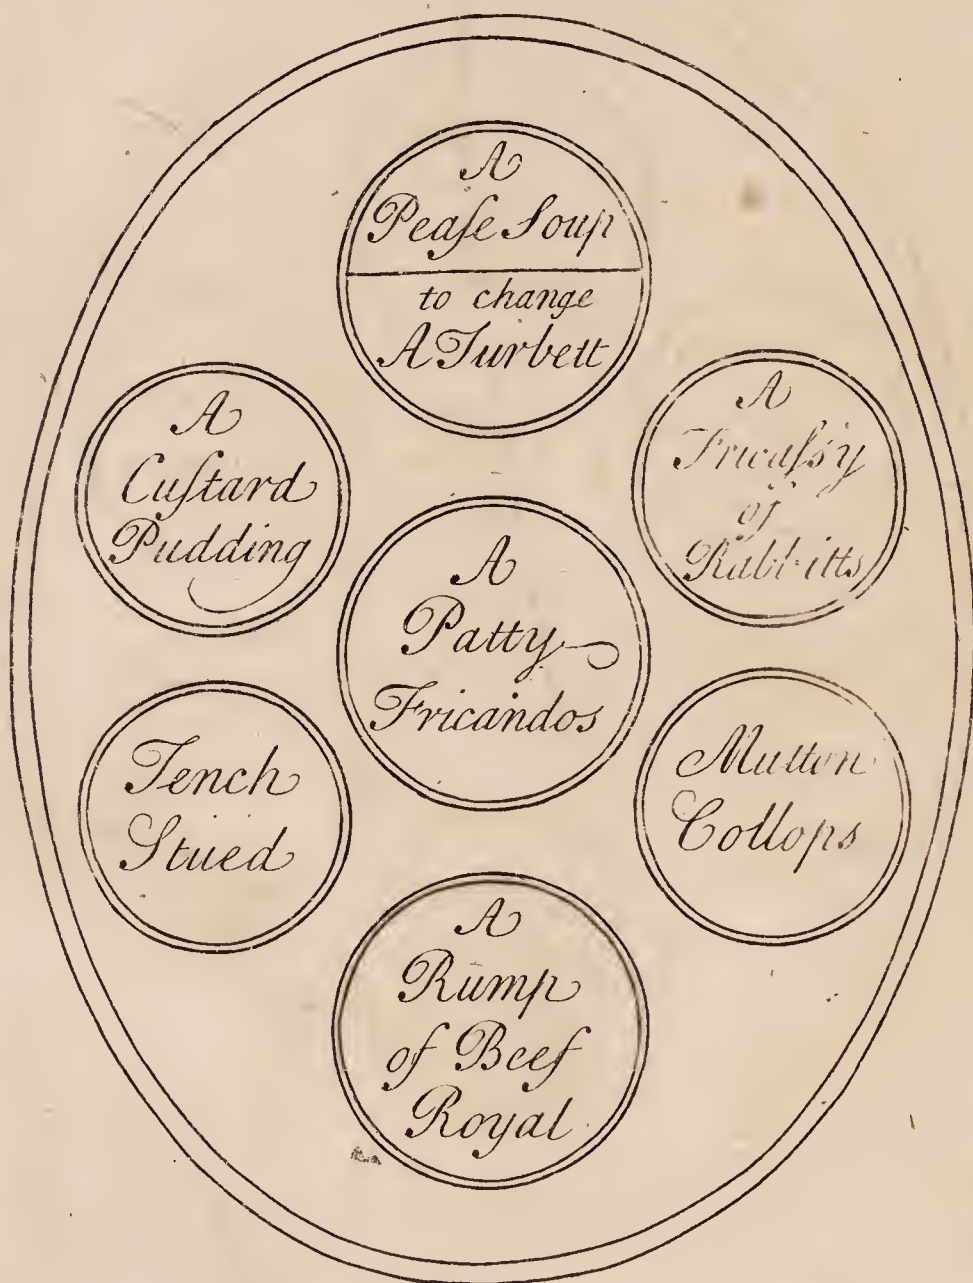 A
Peaſe Soup
to change
A Turbett
A
Cuſtard
Pudding
A
Fricaſs'y
of
Rabbitts
A
Patty
Fricandos
Tench
Stued
Mutton
Collops
A
Rump
of Beef
Royal